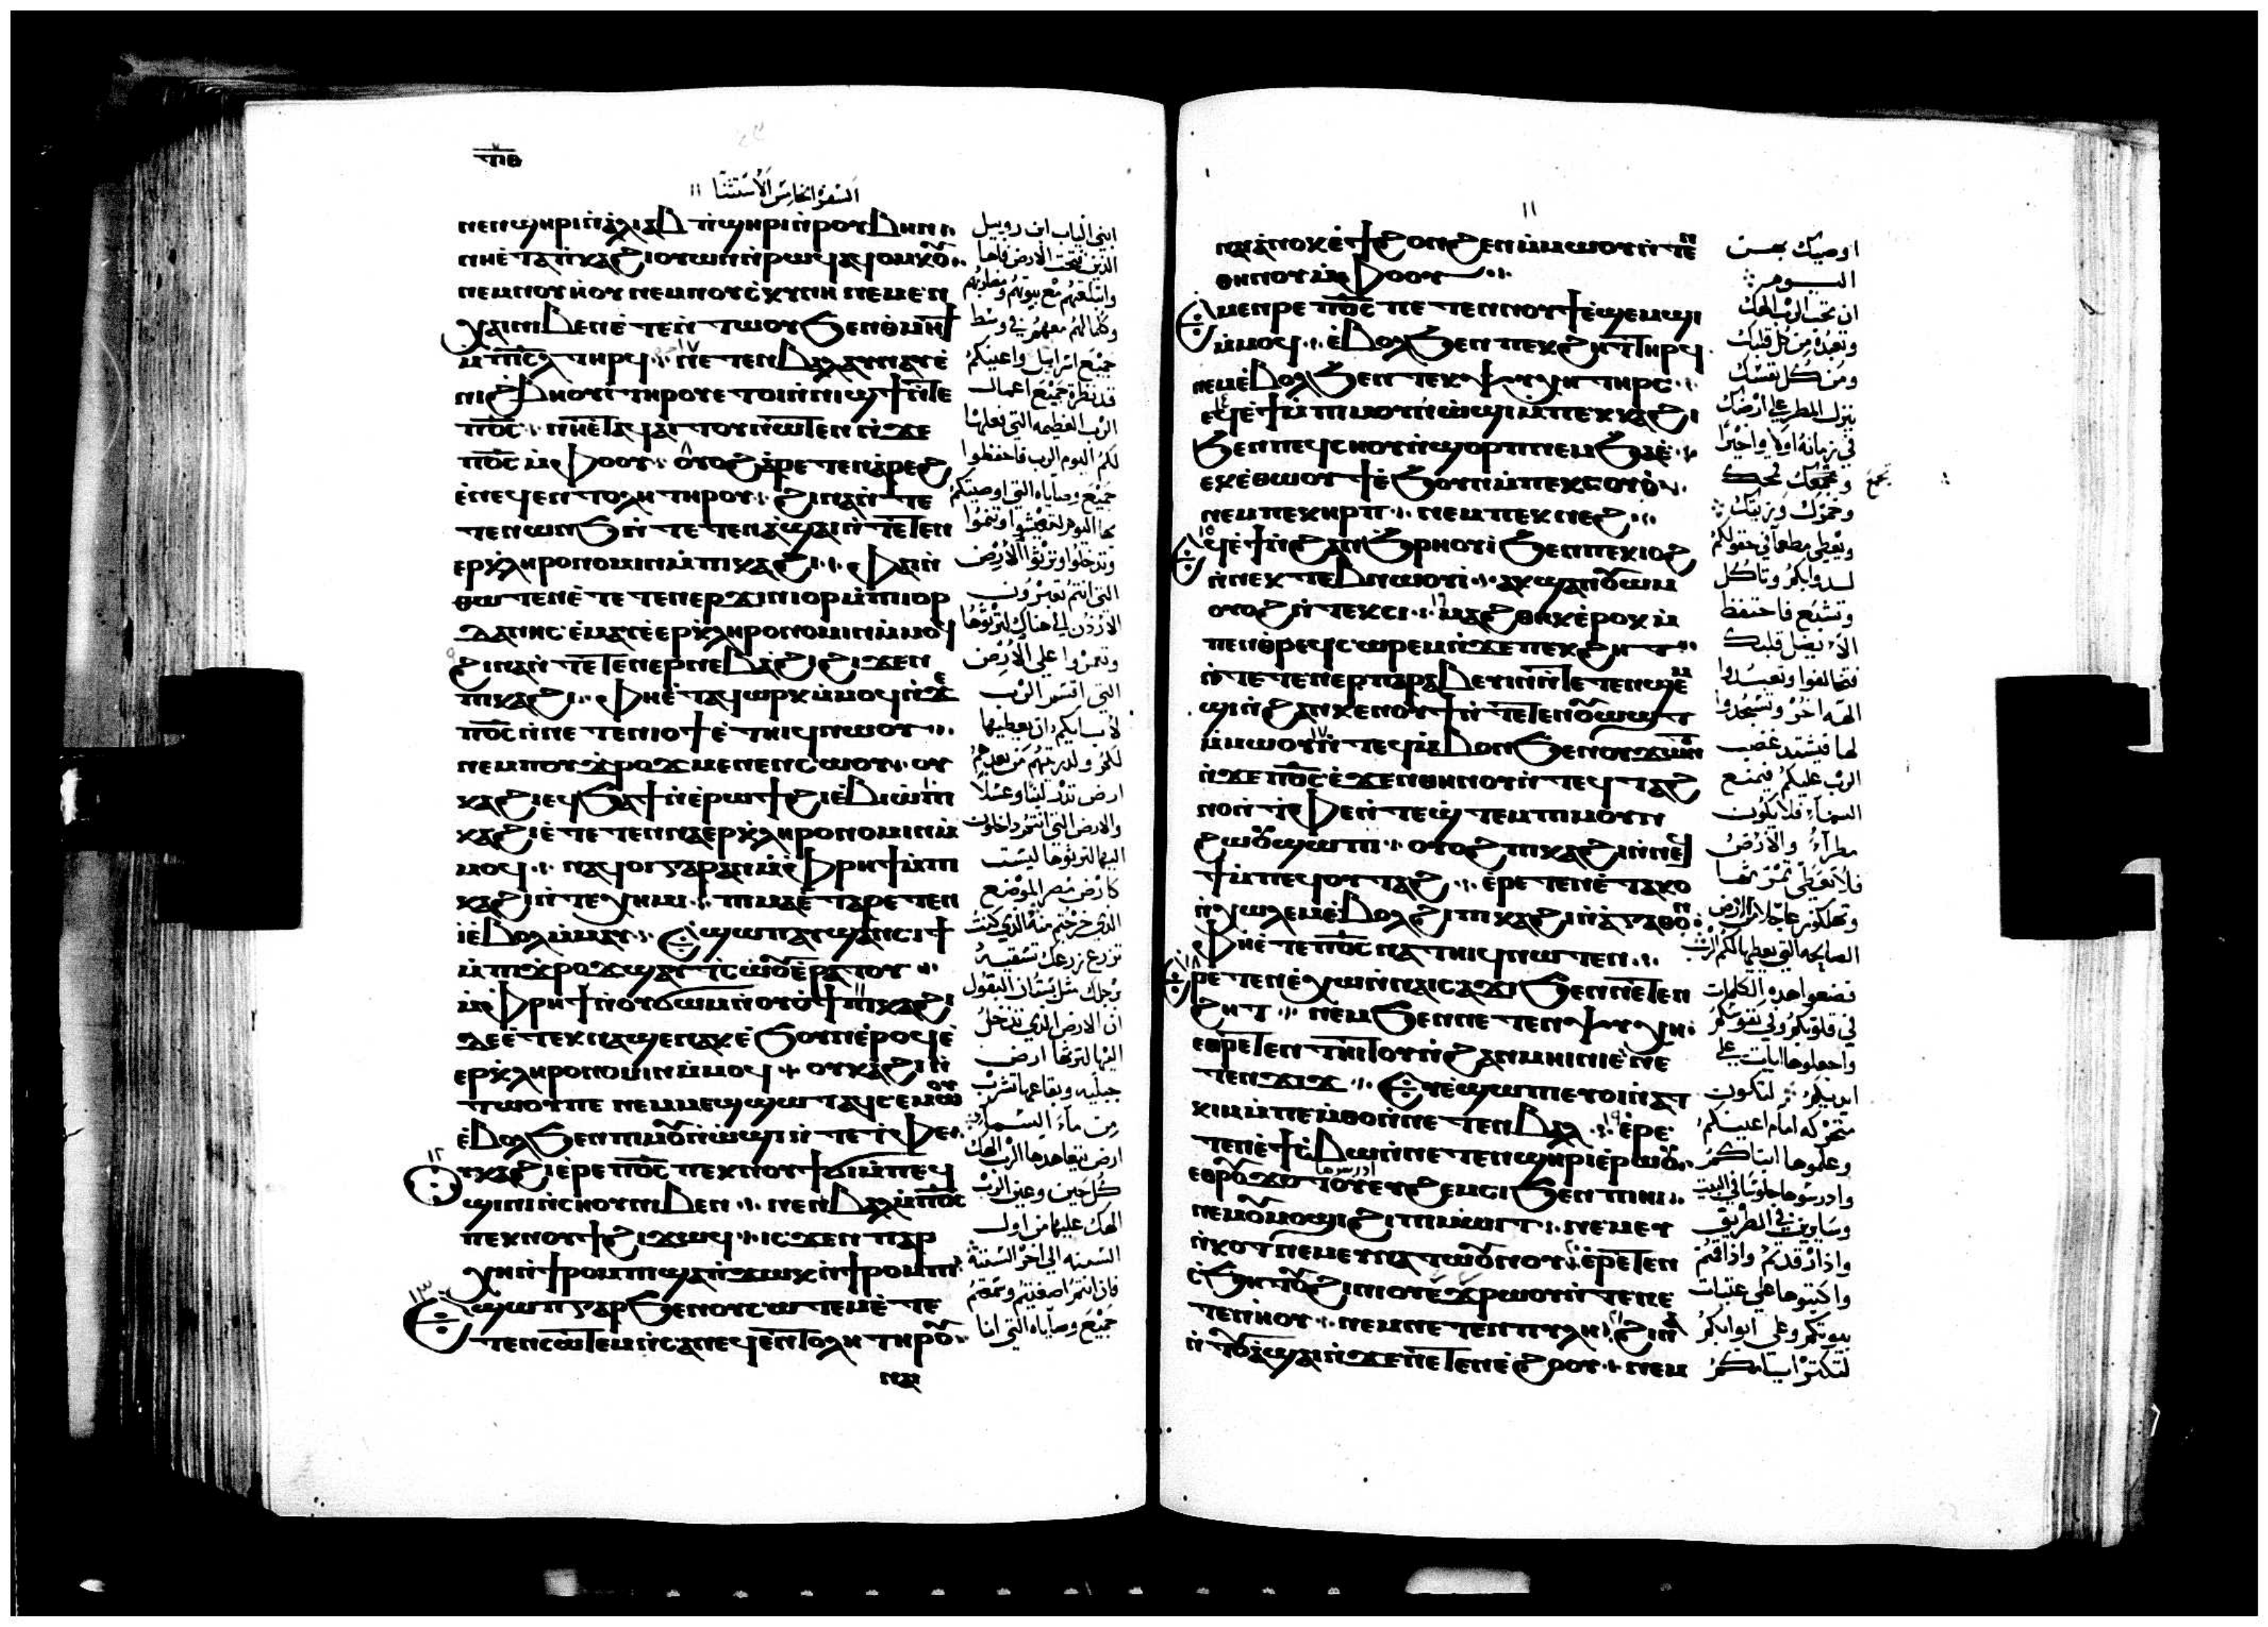 ⲥ̅ⲓ̅ⲑ̅
السفر الخامس الاستثنا
ⲛⲉⲛϣⲏⲣⲓ ⲛ̀ⲁ̀ⲗⲓⲁⲃ ⲡ̀ϣⲏⲣⲓ ⲛ̀ⲣⲟⲩⲃⲏⲛ
ⲛⲏⲉ̀ⲧⲁⲡ̀ⲕⲁϩⲓ ⲟⲩⲱⲛ ⲛ̀ⲣⲱϥ ⲁϥⲟⲙⲕⲟⲩ
ⲛⲉⲙ ⲛⲟⲩⲏ̀ⲟⲩ ⲛⲉⲙ ⲛⲟⲩⲥ̀ⲕⲩⲛⲏ ⲛⲉⲙ ⲉⲛ
ⲭⲁⲓ ⲛⲓⲃⲉⲛ ⲉ̀ⲧⲉⲛ̀ⲧⲱⲟⲩ ϧⲉⲛ ⲑ̀ⲙⲏϯ
ⲙ̀ⲡⲓⲥ̅ⲗ̅ ⲧⲏⲣϥ ⲛⲉⲧⲉⲛⲃⲁⲗ ⲁⲩⲛⲁⲩ ⲉ̀
ⲛⲓϩⲃⲏⲟⲩⲓ̀ ⲧⲏⲣⲟⲩ ⲉⲧⲟⲓ ⲛ̀ⲛⲓϣϯ ⲛ̀ⲧⲉ
ⲡⲟ̅ⲥ̅ ⲛⲏⲉ̀ⲧⲁϥⲁⲓⲧⲟⲩ ⲛⲱⲧⲉⲛ ⲛ̀ϫⲉ
ⲡⲟ̅ⲥ̅ ⲙ̀ⲫⲟⲟⲩ ⲟⲩⲟϩ ⲁ̀ⲣⲉⲧⲉⲛⲁ̀ⲣⲉϩ
ⲉ̀ⲛⲉϥⲉⲛⲧⲟⲗⲏ ⲧⲏⲣⲟⲩ ϩⲓⲛⲁ ⲛ̀ⲧⲉ
ⲧⲉⲛⲱⲛϧ ⲛ̀ⲧⲉⲧⲉⲛⲁ̀ϣⲁⲓ ⲛ̀ⲧⲉⲧⲉⲛ
ⲉⲣⲕ̀ⲗⲏⲣⲟⲛⲟⲙⲓⲛ ⲙ̀ⲡⲓⲕⲁϩⲓ ⲫⲁⲓ ⲛ̀
ⲑⲱⲧⲉⲛ ⲉ̀ⲧⲉⲧⲉⲛⲉⲣϫⲓⲛⲓⲟⲣ ⲙ̀ⲡⲓⲓⲟⲣ
ⲇⲁⲛⲏⲥ ⲉ̀ⲙⲁⲩ ⲉ̀ⲉⲣⲕ̀ⲗⲏⲣⲟⲛⲟⲙⲓⲛ ⲙ̀ⲙⲟϥ
ϩⲓⲛⲁ ⲛ̀ⲧⲉⲧⲉⲛⲉⲣⲛⲉⲃⲁ̀ϩⲓ ϩⲓϫⲉⲛ
ⲡⲓⲕⲁϩⲓ ⲫⲏⲉ̀ⲧⲁϥⲱⲣⲕ ⲙ̀ⲙⲟϥ ⲛ̀ϫⲉ
ⲡⲟ̅ⲥ̅ ⲛ̀ⲛⲉⲧⲉⲛⲓⲟϯ ⲉ̀ⲧⲏⲓϥ ⲛⲱⲟⲩ
ⲛⲉⲙ ⲡⲟⲩϫ̀ⲣⲟϫ ⲙⲉⲛⲉⲛⲥⲱⲟⲩ ⲟⲩ
ⲕⲁϩⲓ ⲉϥϧⲁϯ ⲛ̀ⲉ̀ⲣⲱϯ ϩⲓ ⲉ̀ⲃⲓⲱ̀ ⲡⲓ
ⲕⲁϩⲓ ⲉ̀ⲧⲉⲧⲉⲛⲛⲁⲉⲣⲕ̀ⲗⲏⲣⲟⲛⲟⲙⲓⲛ ⲙ̀
ⲙⲟϥ ⲛⲁϥⲟⲓ ⲅⲁⲣ ⲁⲛ ⲙ̀ⲫ̀ⲣⲏϯ ⲙ̀ⲡ
ⲕⲁϩⲓ ⲛ̀ⲧⲉ ⲭⲏⲙⲓ ⲡⲓⲙⲁ ⲉ̀ⲧⲁⲣⲉⲧⲉⲛ
ⲓ̀ⲉ̀ⲃⲟⲗ ⲙ̀ⲙⲁⲩ ⲉ̀ϣⲱⲡ ⲁⲩϣⲁⲛⲥⲓϯ
ⲙ̀ⲡⲓϫ̀ⲣⲟϫ ϣⲁⲩⲧ̀ⲥⲱⲟⲩ ⲉ̀ⲣⲁⲧⲟⲩ
ⲙ̀ⲫ̀ⲣⲏϯ ⲛ̀ⲟⲩϭⲱⲙ ⲛ̀ⲟⲩⲟϯ ⲡⲓⲕⲁϩⲓ
ⲇⲉ ⲉ̀ⲧⲉⲕⲛⲁϣⲉⲛⲁⲕ ⲉ̀ϧⲟⲩⲛ ⲉ̀ⲣⲟϥ ⲉ̀
ⲉⲣⲕ̀ⲗⲏⲣⲟⲛⲟⲙⲓⲛ ⲙ̀ⲙⲟϥ ⲟⲩⲕⲁϩⲓ ⲛ̀
ⲧⲱⲟⲩ ⲡⲉ ⲛⲉⲙ ⲙⲉϣϣⲱⲧ ⲁϥⲥⲉⲙⲱⲟⲩ
ⲉ̀ⲃⲟⲗ ϧⲉⲛ ⲡⲓⲙⲟⲩⲛ̀ϩⲱⲟⲩ ⲛ̀ⲧⲉ ⲧ̀ⲫⲉ
ⲩⲕⲁϩⲓ ⲉ̀ⲣⲉ ⲡⲟ̅ⲥ̅ ⲡⲉⲕⲛⲟⲩϯ ϭⲓ ⲙ̀ⲡⲉϥ
ϣⲓⲛⲓ ⲛ̀ⲥⲏⲟⲩ ⲛⲓⲃⲉⲛ ⲛⲉⲛⲃⲁⲗ ⲙ̀ⲡⲟ̅ⲥ̅
ⲡⲉⲕⲛⲟⲩϯ ϩⲓϫⲱϥ ⲓⲥϫⲉⲛ ⲧⲁⲣ
ⲭⲏ ⲛ̀ϯⲣⲟⲙⲡⲓ ϣⲁ ⲡ̀ϫⲱⲕ ⲛ̀ϯⲣⲟⲙⲡⲓ
ⲉ̀ϣⲱⲡ ⲅⲁⲣ ϧⲉⲛ ⲟⲩⲥⲱⲧⲉⲙ ⲉ̀ⲧⲉ
ⲧⲉⲛⲥⲱⲧⲉⲙ ⲛ̀ⲥⲁ ⲛⲉϥⲉⲛⲧⲟⲗⲏ ⲧⲏⲣⲟⲩ
ⲛⲁ
ابني الياب ابن روبيل
الذين فتحت الارض فاها
وابتلعتهم مع بيوتهم ومضاربهم
وكلما لهم معهم في وسط
جميع اسراييل واعينكم
قد نظرة جميع اعمال
الرب العظيمه التي فعلها
لكم اليوم الرب فاحفظوا
جميع وصاياه التي اوصيتكم
بها اليوم لتعيشوا وتنموا
وتدخلوا وترثوا الارض
التي انتم تعبرون
الاردن الي هناك لترثوها
وتعمروا علي الارض
التي اقسم الرب
لابايكم ان يعطيها
لكم ولذريتهم من بعدهم
ارض تدر لبنا وعسلا
والارض التي انتم داخلون
اليها لترثوها ليست
كارض مصر الموضع
الذي خرجتم منه الذي كنت
تزرع زرعك تسقيه
برجلك مثل بستان البقول
ان الارض الذي تدخل
اليها لترثها ارض
جبليه وبقاعها تشرب
من ماء السما
ارض يتعاهدها الرب الهك
كل حين وعين الرب
الهك عليها من اول
السنه الي اخر السنه
فان انتم اصغيتم وسمعتم
جميع وصاياه التي انا
١١
ⲛⲁⲓ ⲁ̀ⲛⲟⲕ ⲉ̀ϯϩⲟⲛϩⲉⲛ ⲙ̀ⲙⲱⲟⲩ ⲛ̀ⲧⲉⲛ
ⲑⲏⲛⲟⲩ ⲙ̀ⲫⲟⲟⲩ
ⲉ̀ⲙⲉⲛⲣⲉ ⲡⲟ̅ⲥ̅ ⲡⲉⲧⲉⲛⲛⲟⲩϯ ⲉ̀ϣⲉⲙϣⲓ
ⲙ̀ⲙⲟϥ ⲉ̀ⲃⲟⲗ ϧⲉⲛ ⲡⲉⲕϩⲏⲧ ⲧⲏⲣϥ
ⲛⲉⲙ ⲉ̀ⲃⲟⲗ ϧⲉⲛ ⲧⲉⲕⲯⲩⲭⲏ ⲧⲏⲣⲥ
ⲉϥⲉ̀ϯ ⲙ̀ⲡⲓⲙⲟⲩⲛ̀ϩⲱⲟⲩ ⲙ̀ⲡⲉⲕⲕⲁϩⲓ
ϧⲉⲛ ⲡⲉϥⲥⲏⲟⲩ ⲛ̀ϣⲟⲣⲡ ⲛⲉⲙ ϧⲁⲉ̀
ⲉⲕⲉ̀ⲑⲱⲟⲩϯ ⲉ̀ϧⲟⲩⲛ ⲙ̀ⲡⲉⲕⲥⲟⲩⲟ̀
ⲛⲉⲙ ⲡⲉⲕⲏⲣⲡ ⲛⲉⲙ ⲡⲉⲕⲛⲉϩ
ⲉϥⲉ̀ϯ ⲛ̀ϩⲁⲛϧⲣⲏⲟⲩⲓ̀ ϧⲉⲛ ⲡⲉⲕⲓⲟϩ
ⲛ̀ⲛⲉⲕⲧⲉⲃⲛⲱⲟⲩⲓ̀ ⲁⲕϣⲁⲛⲟⲩⲱⲙ
ⲟⲩⲟϩ ⲛ̀ⲧⲉⲕⲥⲓ ⲙⲁϩⲑⲏⲕ ⲉ̀ⲣⲟⲕ ⲙ̀
ⲡⲉⲛⲑ̀ⲣⲉϥⲥⲱⲣⲉⲙ ⲛ̀ϫⲉ ⲡⲉⲕϩⲏⲧ
ⲛ̀ⲧⲉⲧⲉⲛⲉⲣⲡⲁⲣⲁⲃⲉⲛⲓⲛ ⲛ̀ⲧⲉⲧⲉⲛϣⲉⲙ
ϣⲓ ⲛ̀ϩⲁⲛⲕⲉⲛⲟⲩϯ ⲛ̀ⲧⲉⲧⲉⲛⲟⲩⲱϣⲧ
ⲙ̀ⲙⲱⲟⲩ ⲛ̀ⲧⲉϥⲙ̀ⲃⲟⲛ ϧⲉⲛ ⲟⲩϫⲱⲛⲧ
ⲛ̀ϫⲉ ⲡⲟ̅ⲥ̅ ⲉ̀ϫⲉⲛ ⲑⲏⲛⲟⲩ ⲛ̀ⲧⲉϥⲧⲁϩ
ⲛⲟ ⲛ̀ⲧ̀ⲫⲉ ⲛ̀ⲧⲉϣ̀ⲧⲉⲙ ⲙⲟⲩⲛ
ϩⲱⲟⲩ ϣⲱⲡⲓ ⲟⲩⲟϩ ⲡⲓⲕⲁϩⲓ ⲛ̀ⲛⲉϥ
ϯ ⲙ̀ⲡⲉϥⲟⲩⲧⲁϩ ⲉ̀ⲣⲉⲧⲉⲛⲉ̀ⲧⲁⲕⲟ
ⲛ̀ⲭⲱⲗⲉⲙ ⲉ̀ⲃⲟⲗ ϩⲓ ⲡⲓⲕⲁϩⲓ ⲛ̀ⲁ̀ⲅⲁⲑⲟⲛ
ⲫⲏⲉ̀ⲧⲉ ⲡⲟ̅ⲥ̅ ⲛⲁⲧⲏⲓϥ ⲛⲱⲧⲉⲛ
ⲉ̀ⲣⲉⲧⲉⲛⲉ̀ⲭⲱ ⲛ̀ⲛⲁⲓⲥⲁϫⲓ ϧⲉⲛ ⲛⲉⲧⲉⲛ
ϩⲏⲧ ⲛⲉⲙ ϧⲉⲛ ⲛⲉⲧⲉⲛⲯⲩⲭⲏ
ⲉⲑⲣⲉⲧⲉⲛⲧⲏⲓⲧⲟⲩ ⲛ̀ϩⲁⲛⲙⲏⲓⲛⲓ ⲉ̀ⲛⲉ
ⲧⲉⲛϫⲓϫ ⲉⲩⲉ̀ϣⲱⲡⲓ ⲉⲩⲟⲓ ⲛ̀ⲁⲧ
ⲕⲓⲙ ⲙ̀ⲡⲉⲙ̀ⲑⲟ ⲛ̀ⲛⲉⲧⲉⲛⲃⲁⲗ ⲉ̀ⲣⲉ
ⲧⲉⲛⲉ̀ϯⲥ̀ⲃⲱ ⲛ̀ⲛⲉⲧⲉⲛϣⲏⲣⲓ ⲉ̀ⲣⲱⲟⲩ
ⲉⲑⲣⲟⲩϫⲟⲧⲟⲩ ⲉⲩϩⲉⲙⲥⲓ ϧⲉⲛ ⲡⲓⲏⲓ
ⲛⲉⲙ ⲉⲩⲙⲟϣⲓ ϩⲓ ⲡⲓⲙⲱⲓⲧ ⲛⲉⲙ ⲉⲩ
ⲛ̀ⲕⲟⲧ ⲛⲉⲙ ⲉⲩⲛⲁⲧⲱⲟⲩⲛⲟⲩ ⲉ̀ⲣⲉⲧⲉⲛ
ⲥ̀ϧⲏⲧⲟⲩ ϩⲓ ⲛⲓⲟⲩⲉϫⲣⲱⲟⲩ ⲛ̀ⲧⲉ ⲛⲉ
ⲧⲉⲛⲏⲟⲩ ⲛⲉⲙ ⲛⲉⲧⲉⲛⲡⲩⲗⲏ ϩⲓⲛⲁ
ⲛ̀ⲧⲟⲩⲁ̀ϣⲁⲓ ⲛ̀ϫⲉ ⲛⲉⲧⲉⲛⲉ̀ϩⲟⲟⲩ ⲛⲉⲙ
اوصيك بهن
اليوم
ان تحب الرب الهك
وتعبده من كل قلبك
ومن كل نفسك
ينزل المطر علي ارضك
في زمانه اولا واخيرا
وتجمع قمحك
تجمع
وخمرك وزيتك
ويعطي مطعما في حقولكم
لدوابكم وتاكل
وتشبع فاحتفظ
الا يضل قلبك
فتخالفوا وتعبدوا
الهه اخر وتسجدوا
لها فيشتد غضب
الرب عليكم فيمنع
السماء فلا يكون
مطراً والارض
فلا تعطي ثمرتها
وتهلكون عاجلا من الارض
الصالحه التي يعطيها لكم الرب
فضعوا هذه الكلمات
في قلوبكم وفي نفوسكم
واجعلوها ايات علي
ايديكم لتكون
متحركه امام اعينكم
وعلموها ابناكم
وادرسوها جلوسا في البيت
وسايرين في الطريق
واذا رقدتم واذا قمتم
واكتبوها علي عتبات
بيوتكم وعلي ابوابكم
لتكثر ايامكم